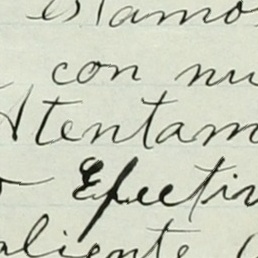 estamos
con nu
Atentam
Efectiv
aliente